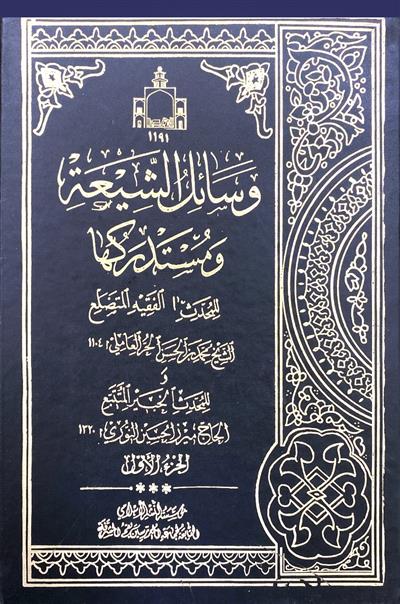 ١١٩١
وسائل الشيعة
ومستدركها
للمحدث الفقيه المتضلع
الشيخ محمد بن الحسن الحر العاملي: ١١٠٤
و
للمحدث الخبير المتتبع
الحاج ميرزا حسين النوري: ١٣٢٠
الجزء الأول
مؤسسة النشر الإسلامي
التابعة لجماعة المدرسين بقم المشرفة